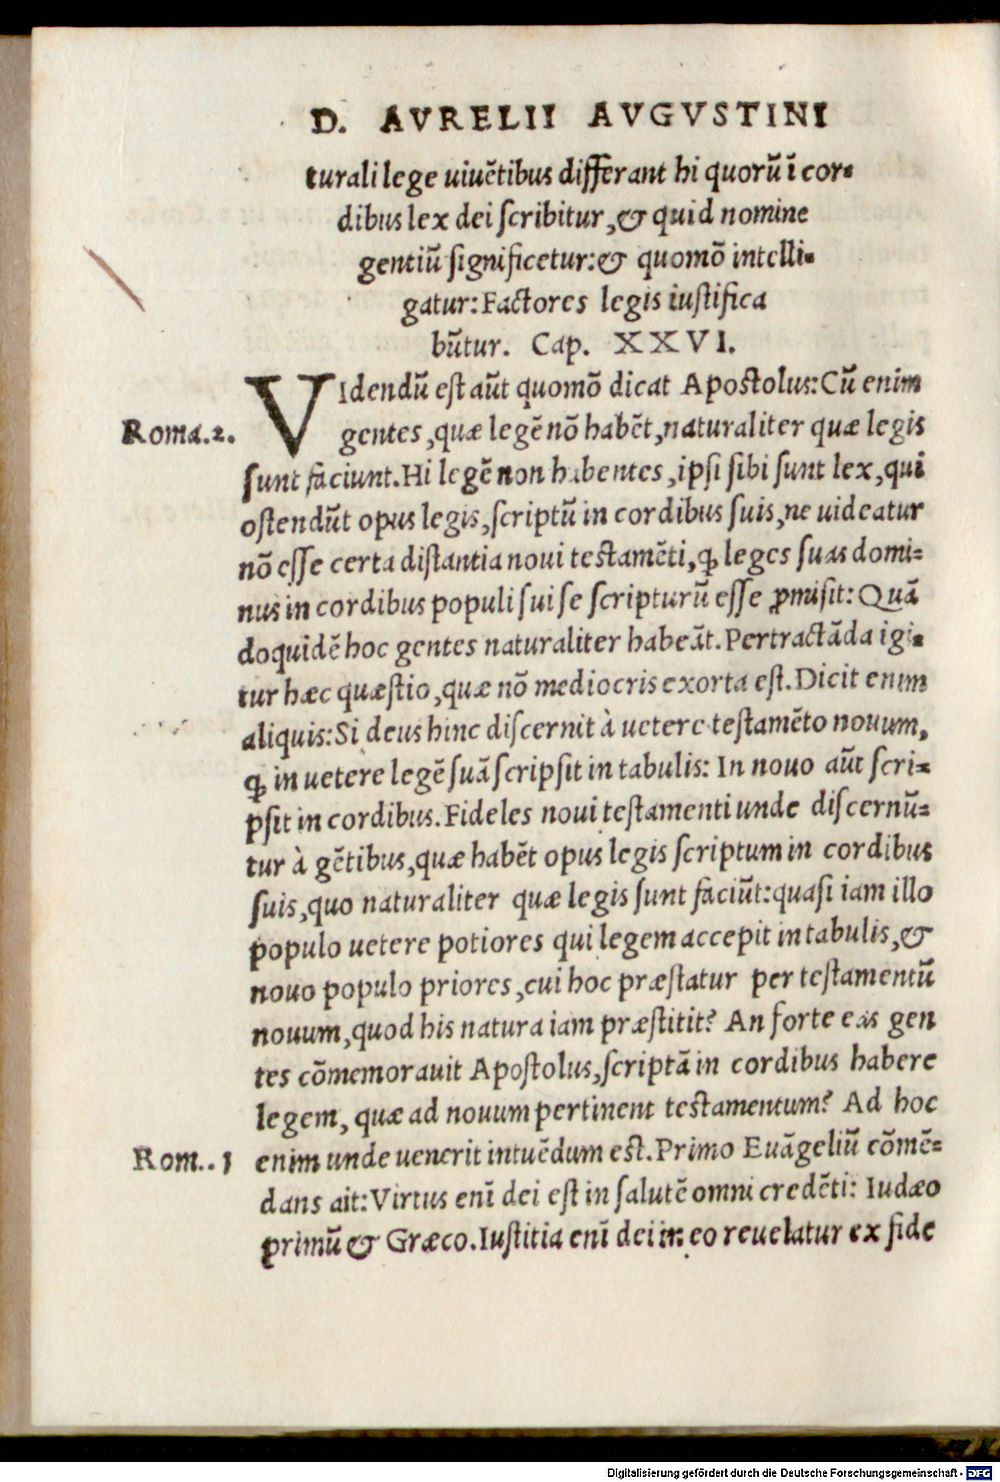 D. AVRELII AVGVSTINI
turali lege uiuētibus differant hi quorū ī cor-
dibus lex dei ſcribitur, & quid nomine
gentiū ſignificetur: & quomō intelli-
gatur: Factores legis iuſtifica
būtur. Cap. XXVI.
VIdendū eſt aūt quomō dicat Apoſtolus: Cū enim
Roma. 2. gentes, quæ legē nō habēt, naturaliter quæ legis
ſunt faciunt. Hi legē non habentes, ipſi ſibi ſunt lex, qui
oſtendūt opus legis, ſcriptū in cordibus ſuis, ne uideatur
nō eſſe certa diſtantia noui teſtamēti, ꝙ leges ſuas domi-
nus in cordibus populi ſui ſe ſcripturū eſſe ꝓmiſit: Quā
doquidē hoc gentes naturaliter habeāt. Pertractāda igi-
tur hæc quæſtio, quæ nō mediocris exorta eſt. Dicit enim
aliquis: Si deus hinc diſcernit à uetere teſtamēto nouum,
ꝙ in uetere legē ſuā ſcripſit in tabulis: In nouo aūt ſcri-
pſit in cordibus. Fideles noui teſtamenti unde diſcernū-
tur à gētibus, quæ habēt opus legis ſcriptum in cordibus
ſuis, quo naturaliter quæ legis ſunt faciūt: quaſi iam illo
populo uetere potiores qui legem accepit in tabulis, &
nouo populo priores, cui hoc præſtatur per teſtamentū
nouum, quod his natura iam præſtitit? An forte eas gen
tes cōmemorauit Apoſtolus, ſcriptā in cordibus habere
legem, quæ ad nouum pertinent teſtamentum? Ad hoc
Rom.. 1 enim unde uenerit intuēdum eſt. Primo Euāgeliū cōmē-
dans ait: Virtus enī dei eſt in ſalutē omni credēti: Iudæo
primū & Græco. Iuſtitia enī dei in eo reuelatur ex fide
Digitalisierung gefördert durch die Deutsche Forschungsgemeinschaft - DFG